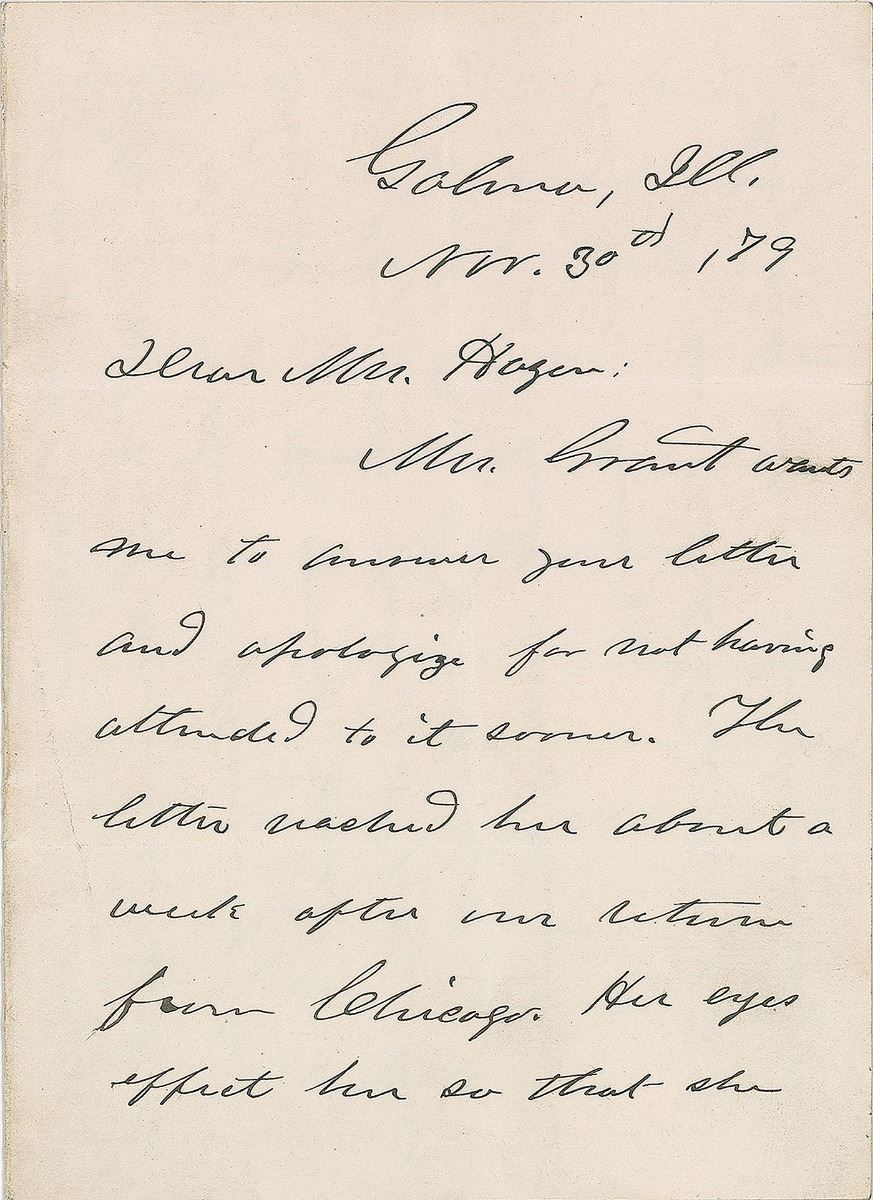 Galena, Ill.
Nov. 30th, '79
Dear Mrs. Hazen:
Mrs. Grant wants
me to answer your letter
and apologize for not having
attended to it sooner. The
letter reached her about a
week after our return
from Chicago. Her eyes
effect her so that she